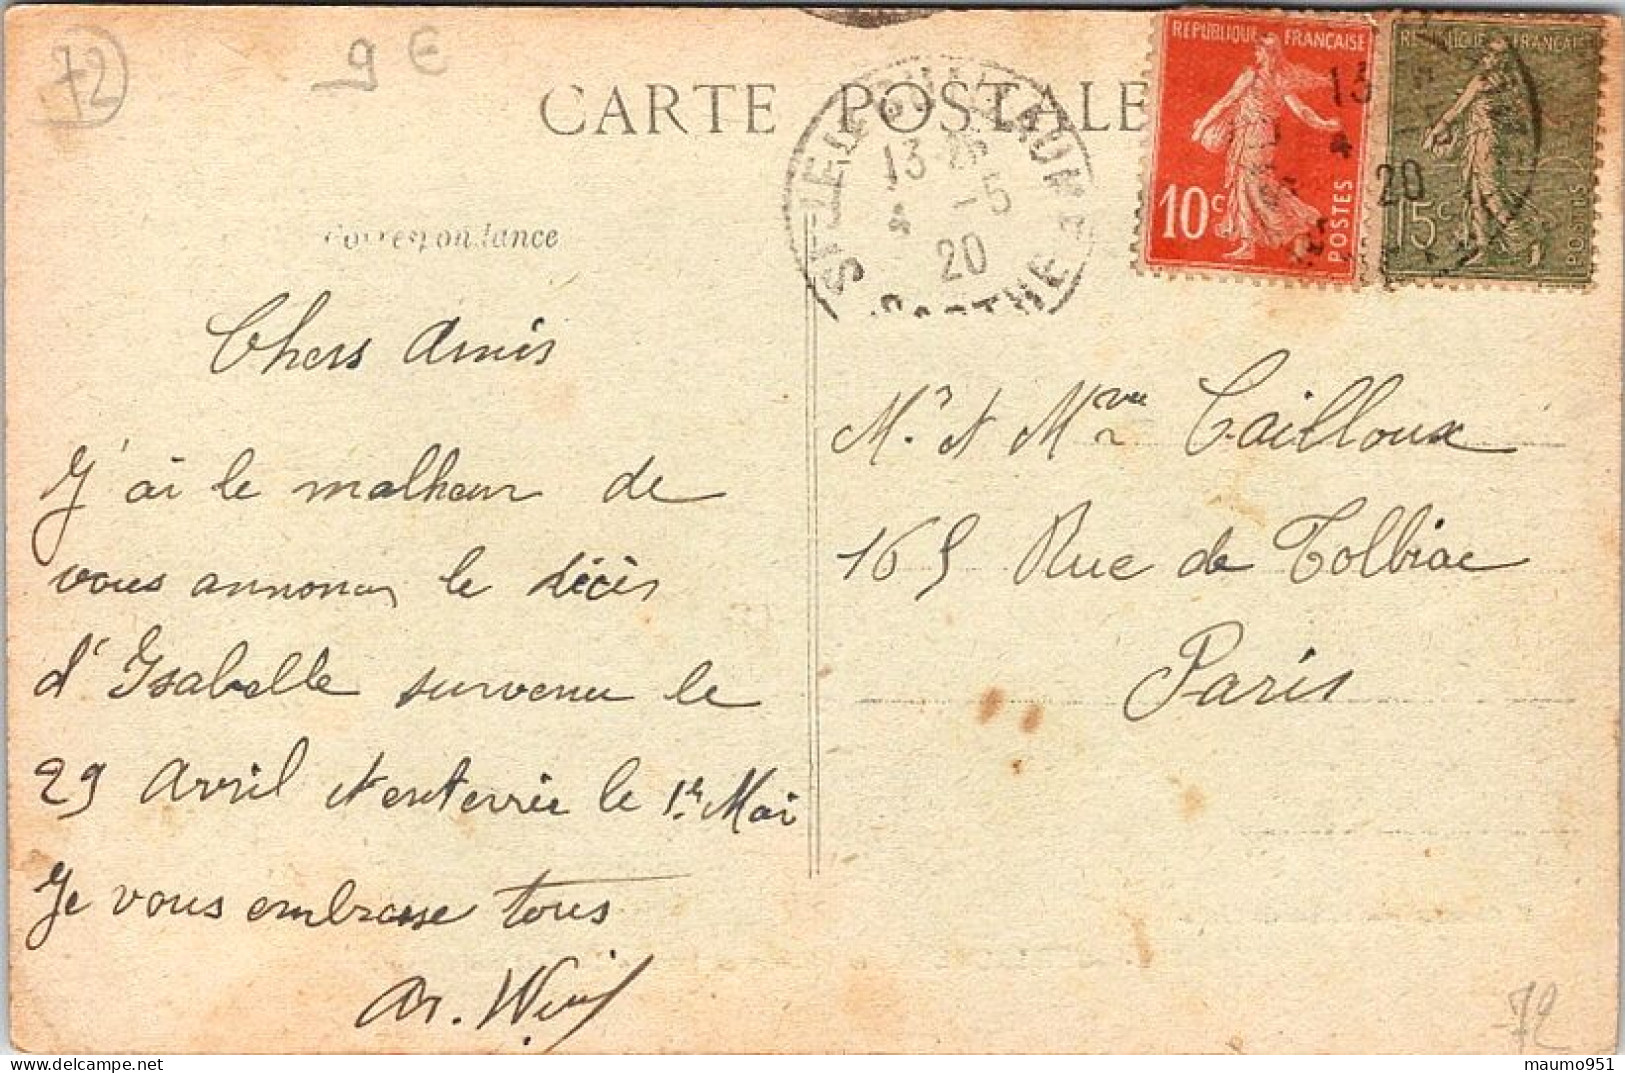 72
9 €
CARTE POSTALE
13
4 -5
20
SARTHE
REPUBLIQUE FRANÇAISE
10c
POSTES
REPUBLIQUE FRANÇAISE
13
4
20
15c
POSTES
Correspondance
Chers Amis
J'ai le malheur de
vous annoncer le décès
d'Isabelle survenu le
29 Avril et enterrée le 1er Mai
Je vous embrasse tous
Mr et Mme Cailloux
165 Rue de Tolbiac
Paris
72
maumo951